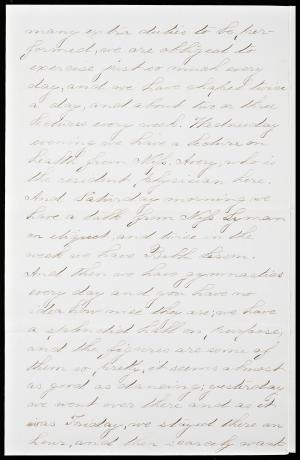 many extra duties to be per-
formed, we are obliged to
exercise just so much every
day, and we have chapel twice
a day, and about two or three
lectures every week. Wednesday
evening we have a lecture on
health from Miss Avery, who is
the resident physician here.
And Saturday morning we
have a talk from Miss Lyman
on etiquet, and twice in the
week we have Bible lesson.
And then we have gymnastics
every day and you have no
idea how nice they are; we have
a splendid hall on purpose,
and the figures are some of
them so pretty, it seems almost
as good as dancing; yesterday
we went over there and as it
was Friday, we stayed there an
hour, and then scarcely want